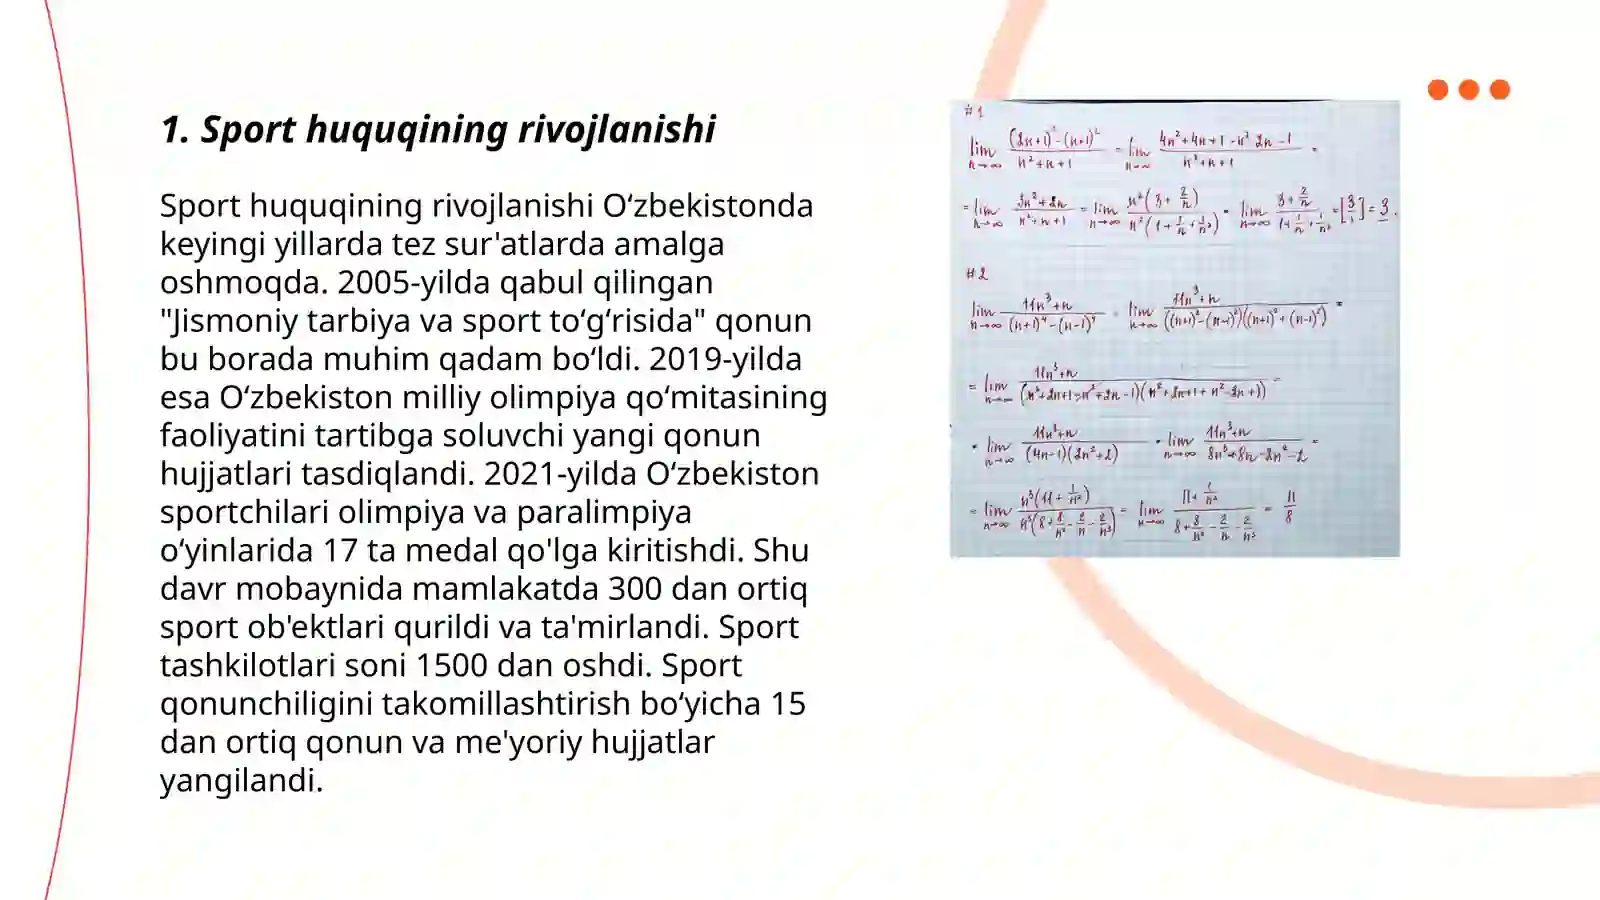 1. Sport huquqining rivojlanishi
Sport huquqining rivojlanishi O‘zbekistonda
keyingi yillarda tez sur'atlarda amalga
oshmoqda. 2005-yilda qabul qilingan
"Jismoniy tarbiya va sport to‘g‘risida" qonun
bu borada muhim qadam bo‘ldi. 2019-yilda
esa O‘zbekiston milliy olimpiya qo‘mitasining
faoliyatini tartibga soluvchi yangi qonun
hujjatlari tasdiqlandi. 2021-yilda O‘zbekiston
sportchilari olimpiya va paralimpiya
o‘yinlarida 17 ta medal qo'lga kiritishdi. Shu
davr mobaynida mamlakatda 300 dan ortiq
sport ob'ektlari qurildi va ta'mirlandi. Sport
tashkilotlari soni 1500 dan oshdi. Sport
qonunchiligini takomillashtirish bo‘yicha 15
dan ortiq qonun va me'yoriy hujjatlar
yangilandi.
#1
#2
lim n→∞ (11n³+n)/((n+1)⁴-(n-1)⁴) = lim n→∞ (11n³+n)/(((n+1)²-(n-1)²)((n+1)²+(n-1)²)) =
= lim n→∞ n³(11+1/n²)/n³(8+8/n²-2/n-2/n³) = lim n→∞ (11+1/n²)/(8+8/n²-2/n-2/n³) = 11/8